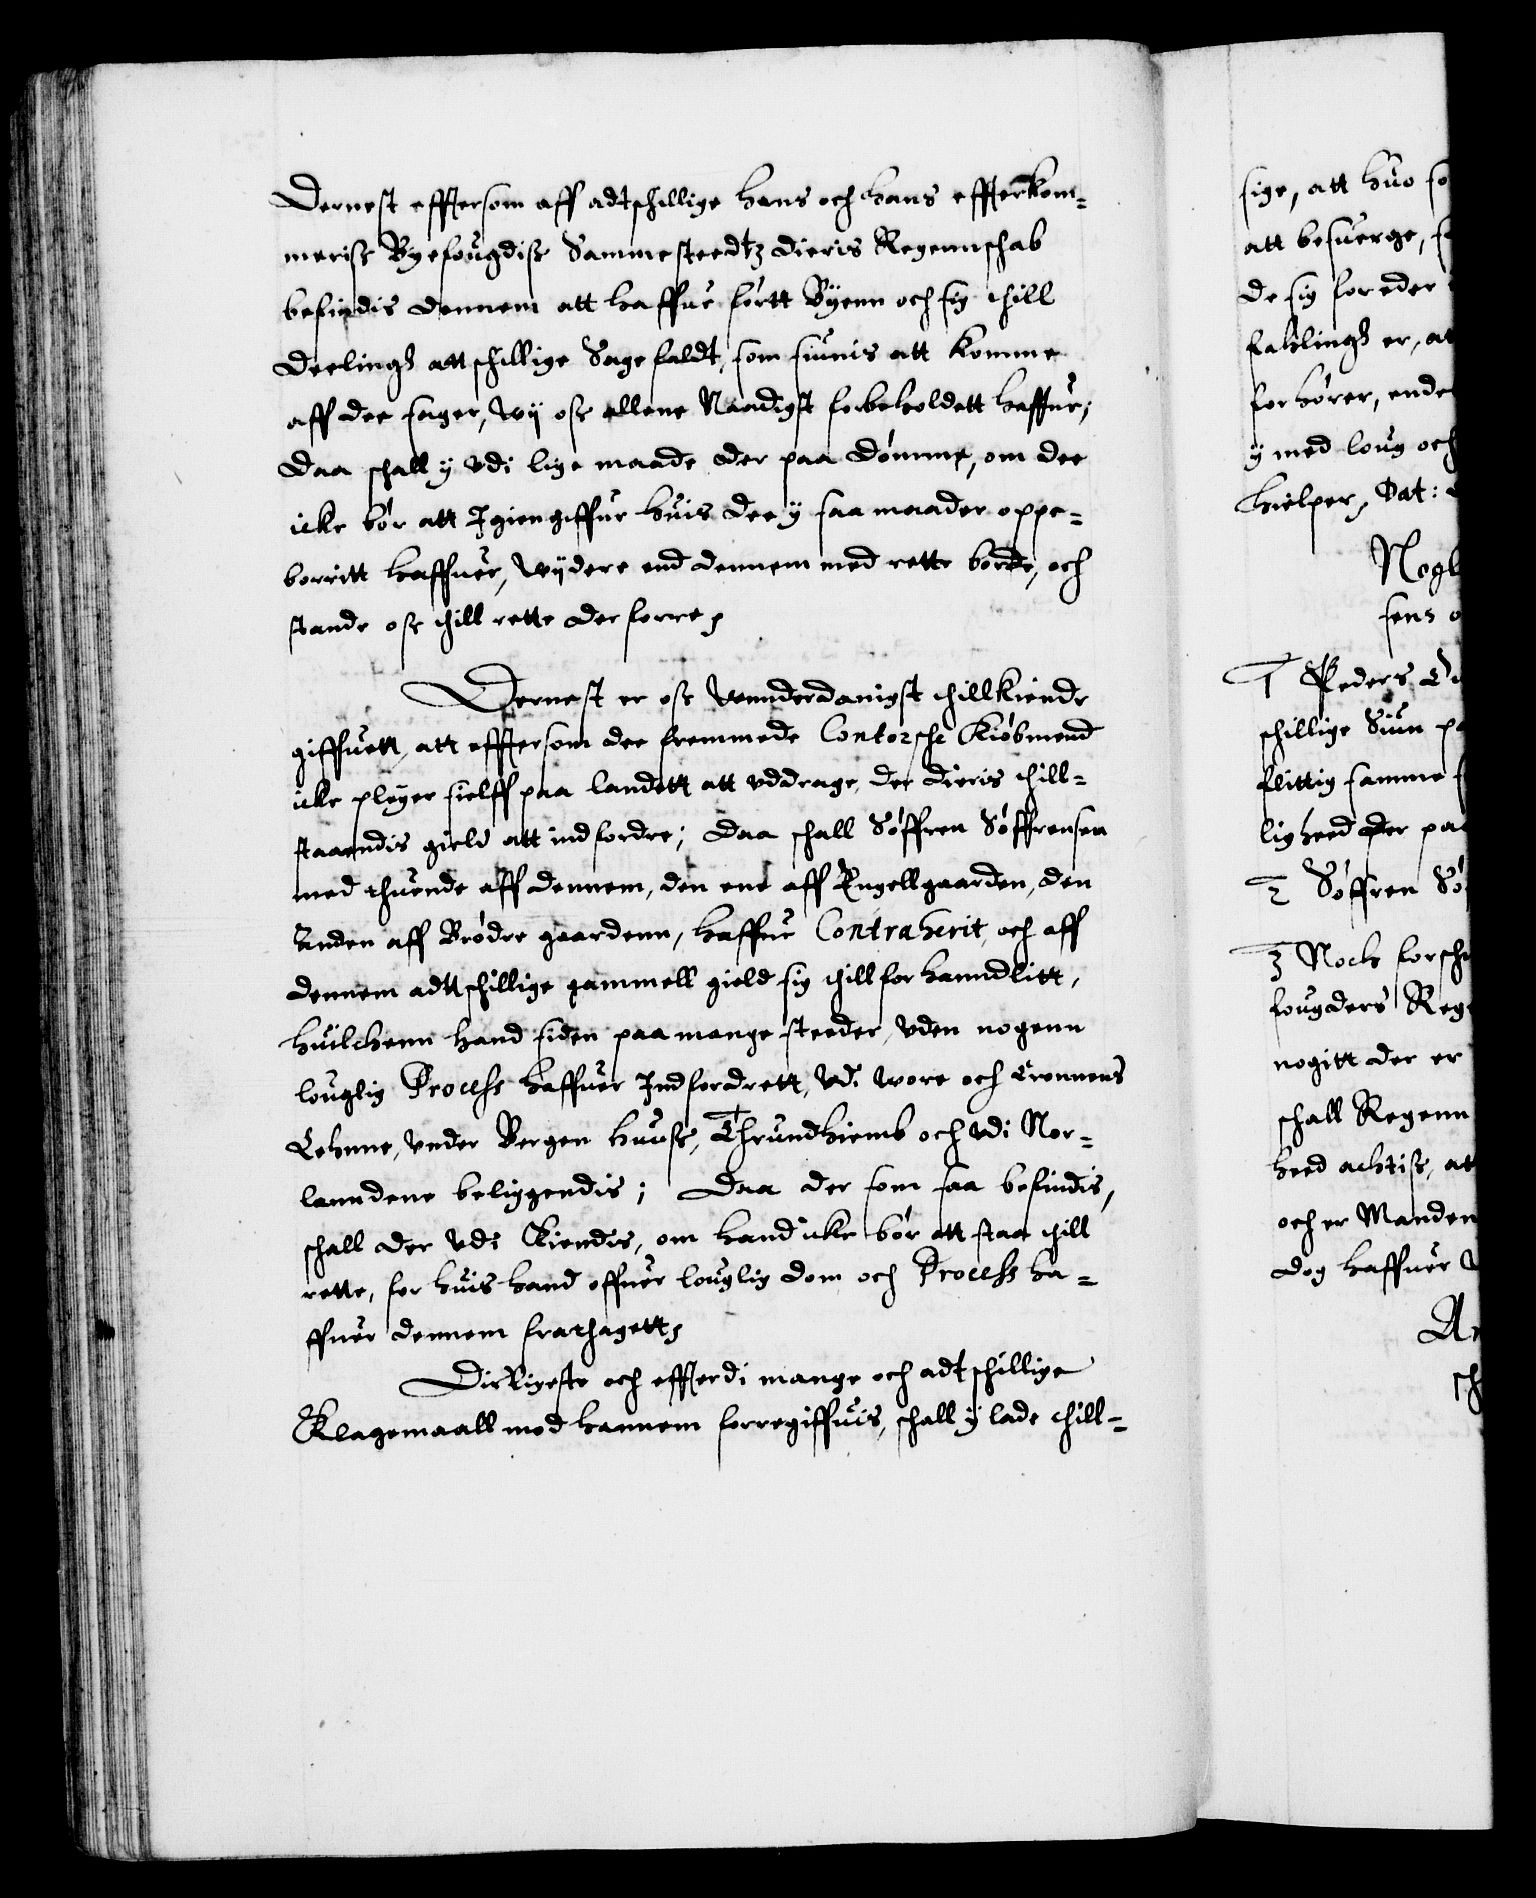 Dernest efftersom aff adtschillige hans och hans effterkom-
meris Byefougdis Sammesteedtz dieris Regennschab
befindis dennem att haffue førtt Byenn och sig thill
deelingh attschillige Sagefaldt, som siunis att komme
aff dee sager, wij oss allene Naadigst forbeholdett haffuer;
daa schall y vdi lige maade der paa dømme, om dee
icke bør att Igiengiffue huis dee y saa maader oppe-
borritt haffuer, wijdere end dennem med rette borde, och
stande oss thill rette derforre,
Dernest er oss Wnnderdanigst thillkiende
giffuett, att efftersom dee fremmede Contorsche Kiøbmend
icke pleyer sielff paa landett att vddrage, der dieris thill-
staaendis gield att indfordre; daa schall Søffren Søffrensen
med thuende aff dennem, den ene aff Engellgaarden, den
Anden aff Brødre gaardenn, haffue Contraherit, och aff
dennem adttschillige gammell gield sig thillforhanndlitt,
huilchenn hand siden paa mange steeder, vden nogenn
louglig Process haffuer Indfordrett, vdi wore och Cronnens
Lehnne, vnder Bergen huuss, Thrundhiemb och vdi Nor-
lanndene beliggendis; Daa der som saa befindis,
schall der vdi Kiendis, om hand icke bør att staa thill
rette, for huis hand offuer louglig dom och Process ha-
ffuer dennem frathagett,
Dissligeste och effterdi mange och adtschillige
Klagemaall mod hannem forregiffuis, schall y lade thill-
sige, att huo so
att besuerge, s
de sig for eder
faklingh er, at
forhører, ende
y med loug och
hielper, Dat:
Nogl
sens o
1 Peders
schillige Siun p
flittig samme
ligheed der paa
2 Søffren Sø
3 Noch forsch
fougders Reg
nogitt der er
schall Regenn
heed achtiss, at
och er Manden
dog haffuer
A
sch